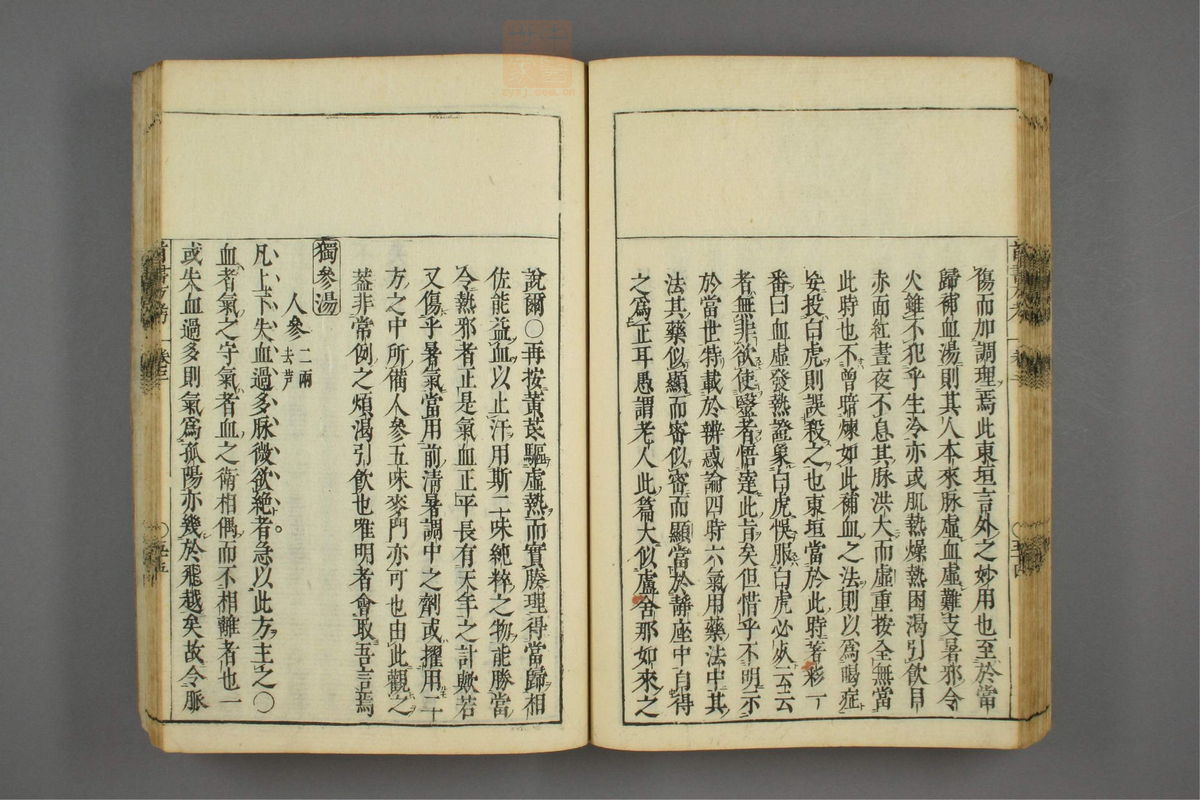 傷而加調理焉此東垣言外之妙用也至於當
歸補血湯則其人本來脉虛血虛難支暑邪令
火雖不犯乎生冷亦或肌熱燥熱困渴引飲目
赤面紅晝夜不息其脉洪大而虛重按全無當
此時也不曾暗煉如此補血之法則以爲暍症
妄投白虎則誤殺之也東垣當於此時著彩一
番曰血虛發熱證象白虎悞服白虎必死云云
者無非欲使醫者悟達此旨矣但惜乎不明示
於當世特載於辨惑論四時六氣用藥法中其
法其藥似顯而密似密而顯當於靜座中自得
之爲正耳愚謂老人此篇大似盧舍那如來之
說爾○再按黃芪驅虛熱而實腠理得當歸相
佐能益血以止汗用斯二味純粹之物能勝當
令熱邪者正是氣血正平長有天年之計歟若
又傷乎暑氣當用前清暑調中之劑或擢用二
方之中所備人參五味麥門亦可也由此觀之
蓋非常例之煩渴引飲也唯明者會取吾言焉
獨參湯
人參二兩去芦
凡上下失血過多脉微欲絶者急以此方主之○
血者氣之守氣者血之衛相偶而不相離者也一
或失血過多則氣爲孤陽亦幾於飛越矣故令脈